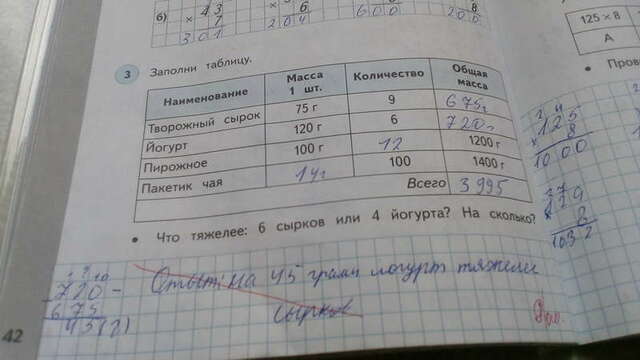 б) × 43 × 6 8
7 204 600 200
301
125 × 8
А
3 Заполни таблицу.
Наименование Масса 1 шт. Количество Общая масса
Творожный сырок 75 г 9 675г
Йогурт 120 г 6 720г
Пирожное 100 г 12 1200 г
Пакетик чая 14г 100 1400 г
Всего 3995
• Что тяжелее: 6 сырков или 4 йогурта? На сколько?
• Пров
× 125
8
1000
× 129
8
1032
Ответ: на 45 грамм йогурт тяжелее
сырков
720 -
675
45(г)
42